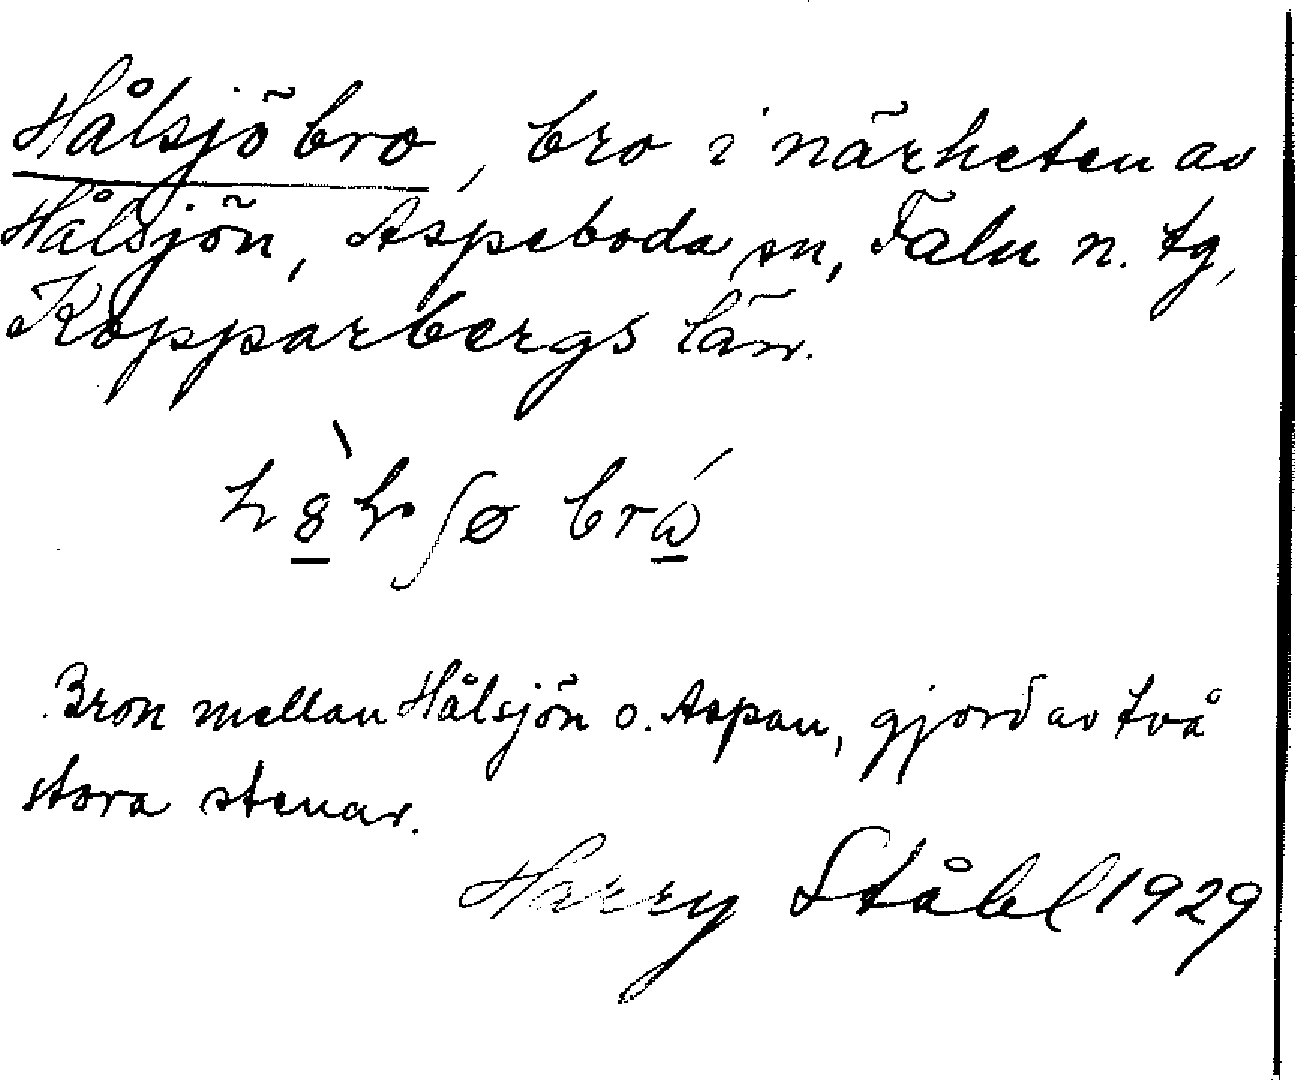 Hålsjöbro, bro i närheten av
Hålsjön, Aspeboda sn, Falu n. tg,
Kopparbergs län.
bro
Bron mellan Hålsjön o. Aspan, gjord av två
stora stenar.
Harry Ståhl 1929